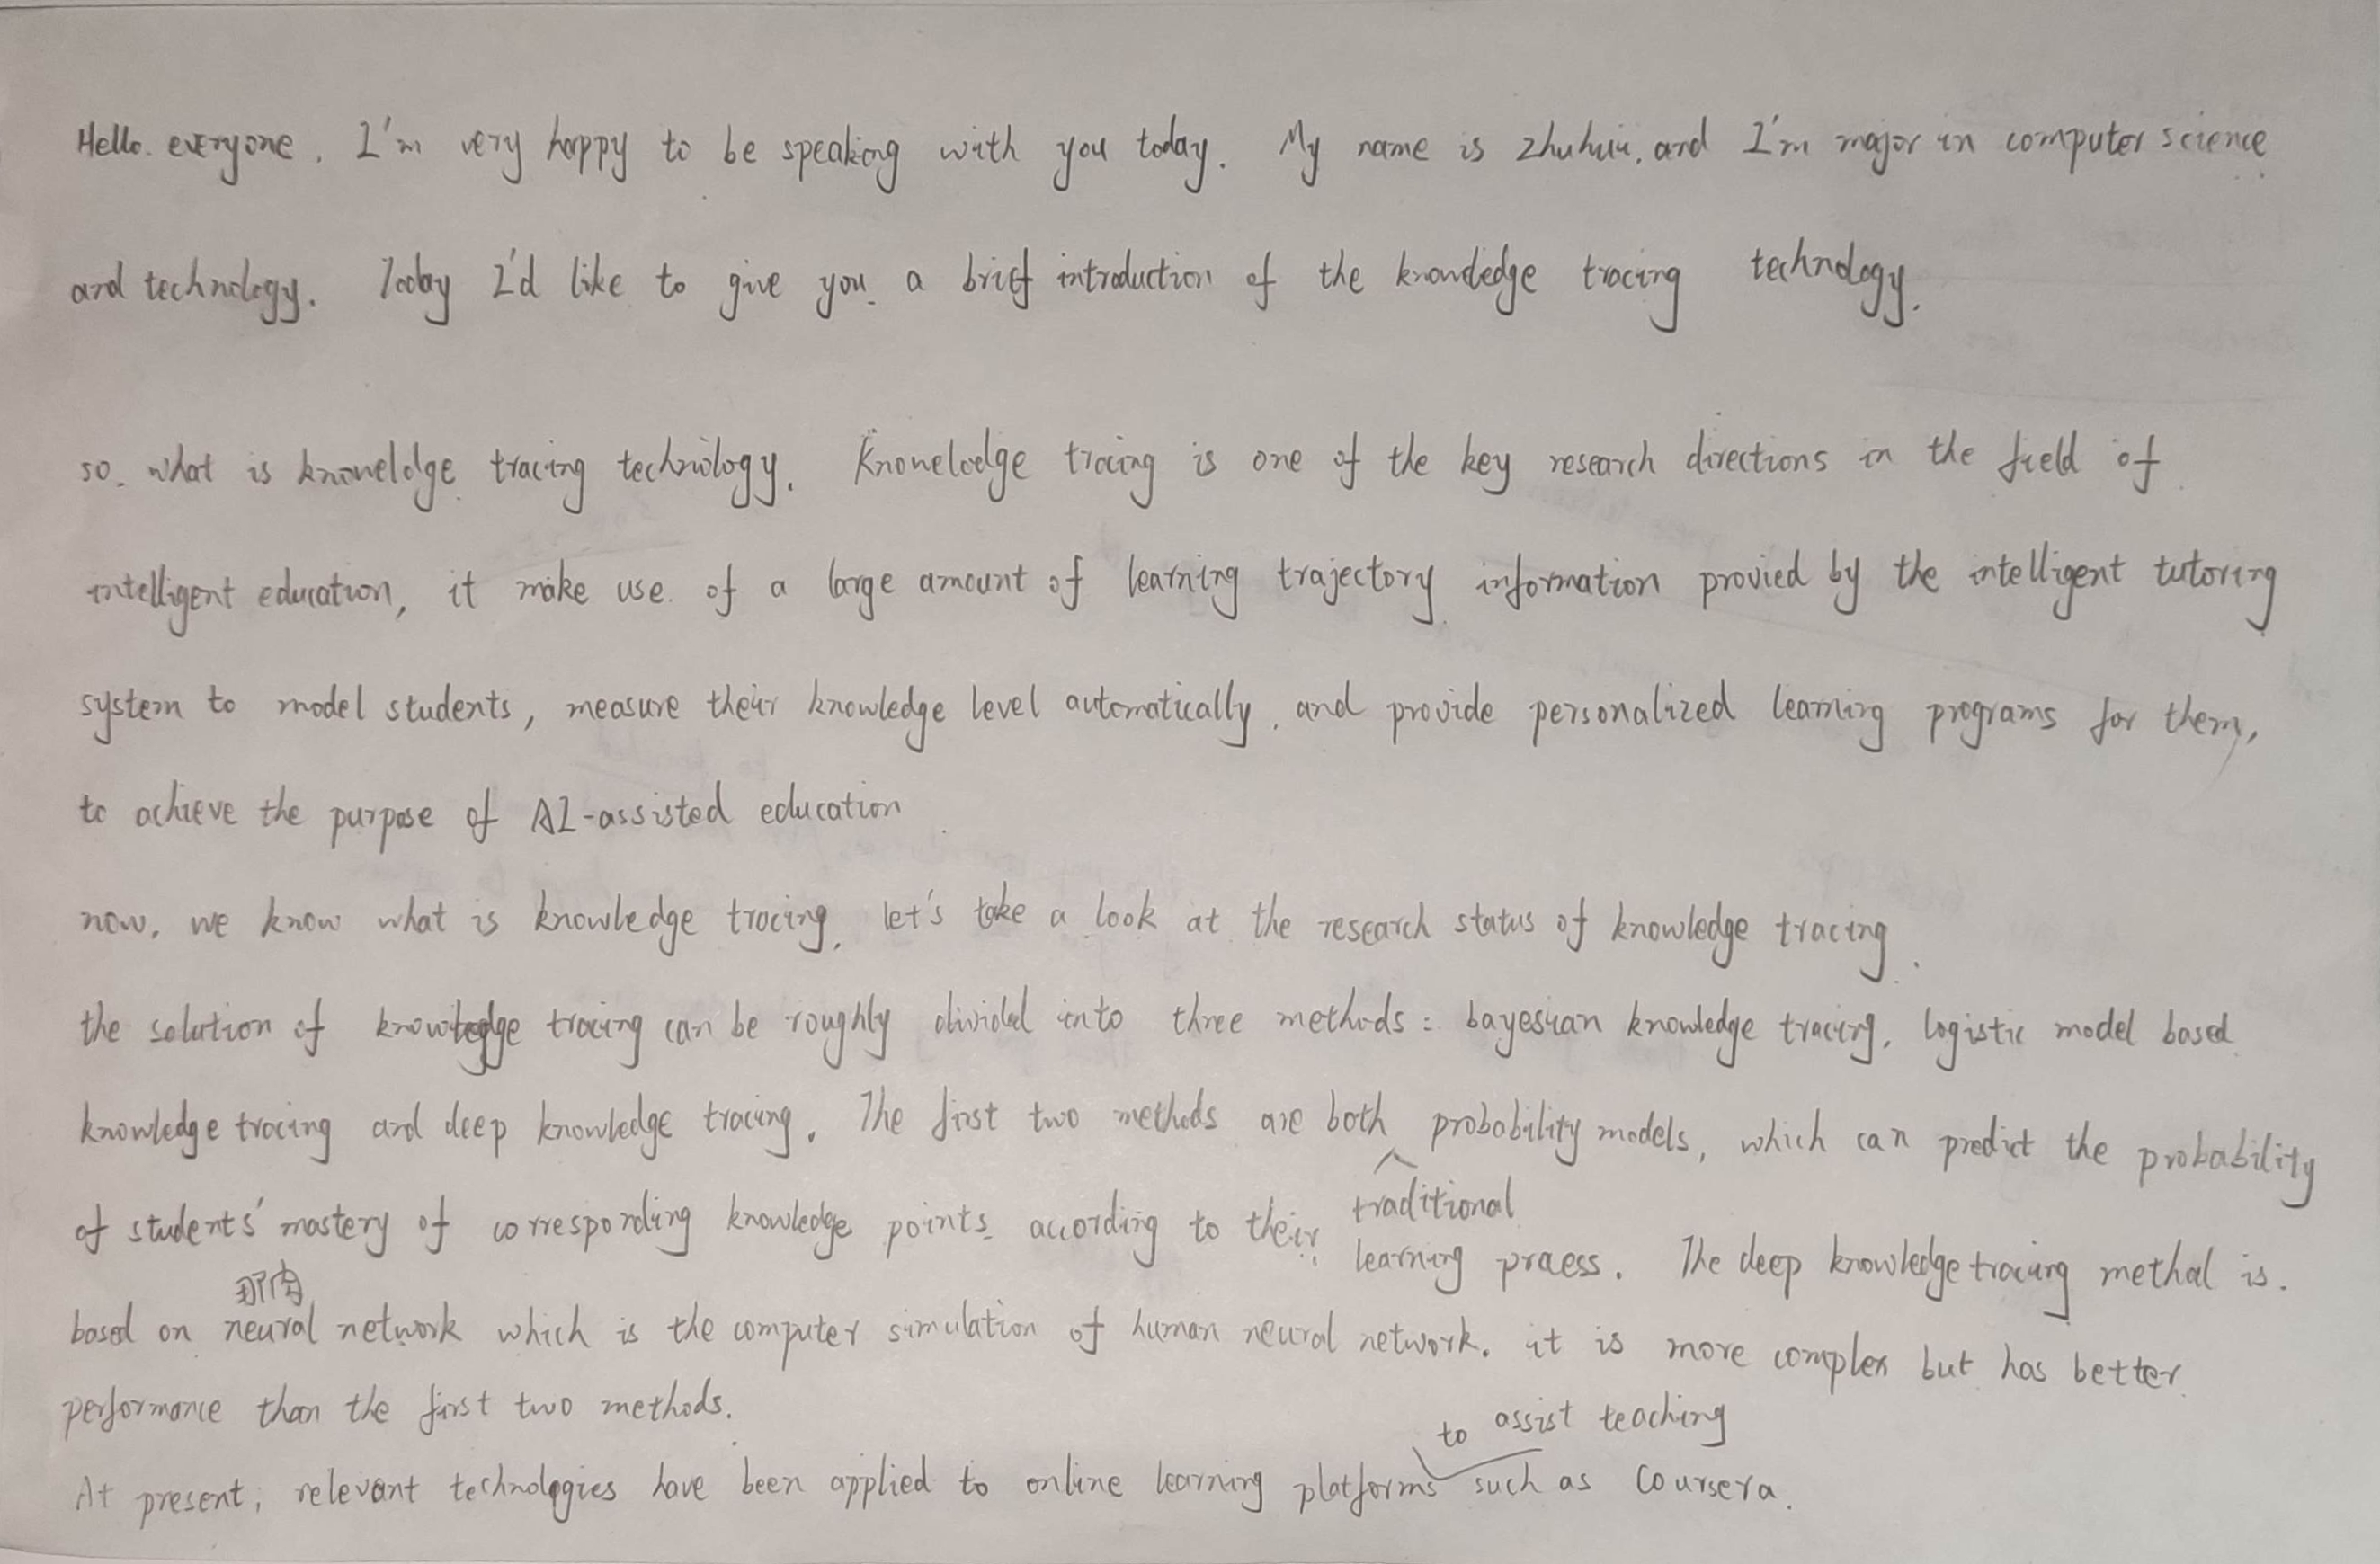 Hello. everyone. I'm very happy to be speaking with you today. My name is zhuhui, and I'm major in computer science
and technology. Today I'd like to give you a brief introduction of the knowledge tracing technology.
so. what is knoweldge tracing technology. Knoweledge tracing is one of the key research directions in the field of
intelligent education, it make use of a large amount of learning trajectory information provied by the intelligent tutoring
system to model students, measure their knowledge level automatically, and provide personalized learning programs for them,
to achieve the purpose of AI-assisted education
now, we know what is knowledge tracing, let's take a look at the research status of knowledge tracing.
the solution of knowledge tracing can be roughly divided into three methods: bayesian knowledge tracing, logistic model based
knowledge tracing and deep knowledge tracing. The first two methods are both probability models, which can predict the probability
traditional
of students' mastery of corresponding knowledge points according to their learning process. The deep knowledge tracing method is.
based on neural network which is the computer simulation of human neural network. it is more complex but has better
performance than the first two methods.
to assist teaching
At present, relevant technologies have been applied to online learning platforms such as Coursera.